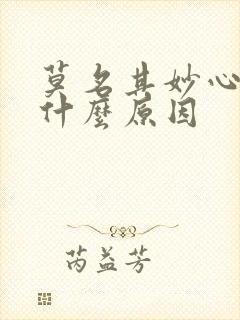 莫名其妙心
什麼原因
芮益芳